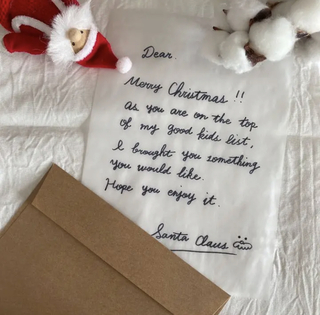 Dear.
Merry Christmas !!
As you are on the top
of my good kids list,
I brought you something
you would like.
Hope you enjoy it.
Santa Claus